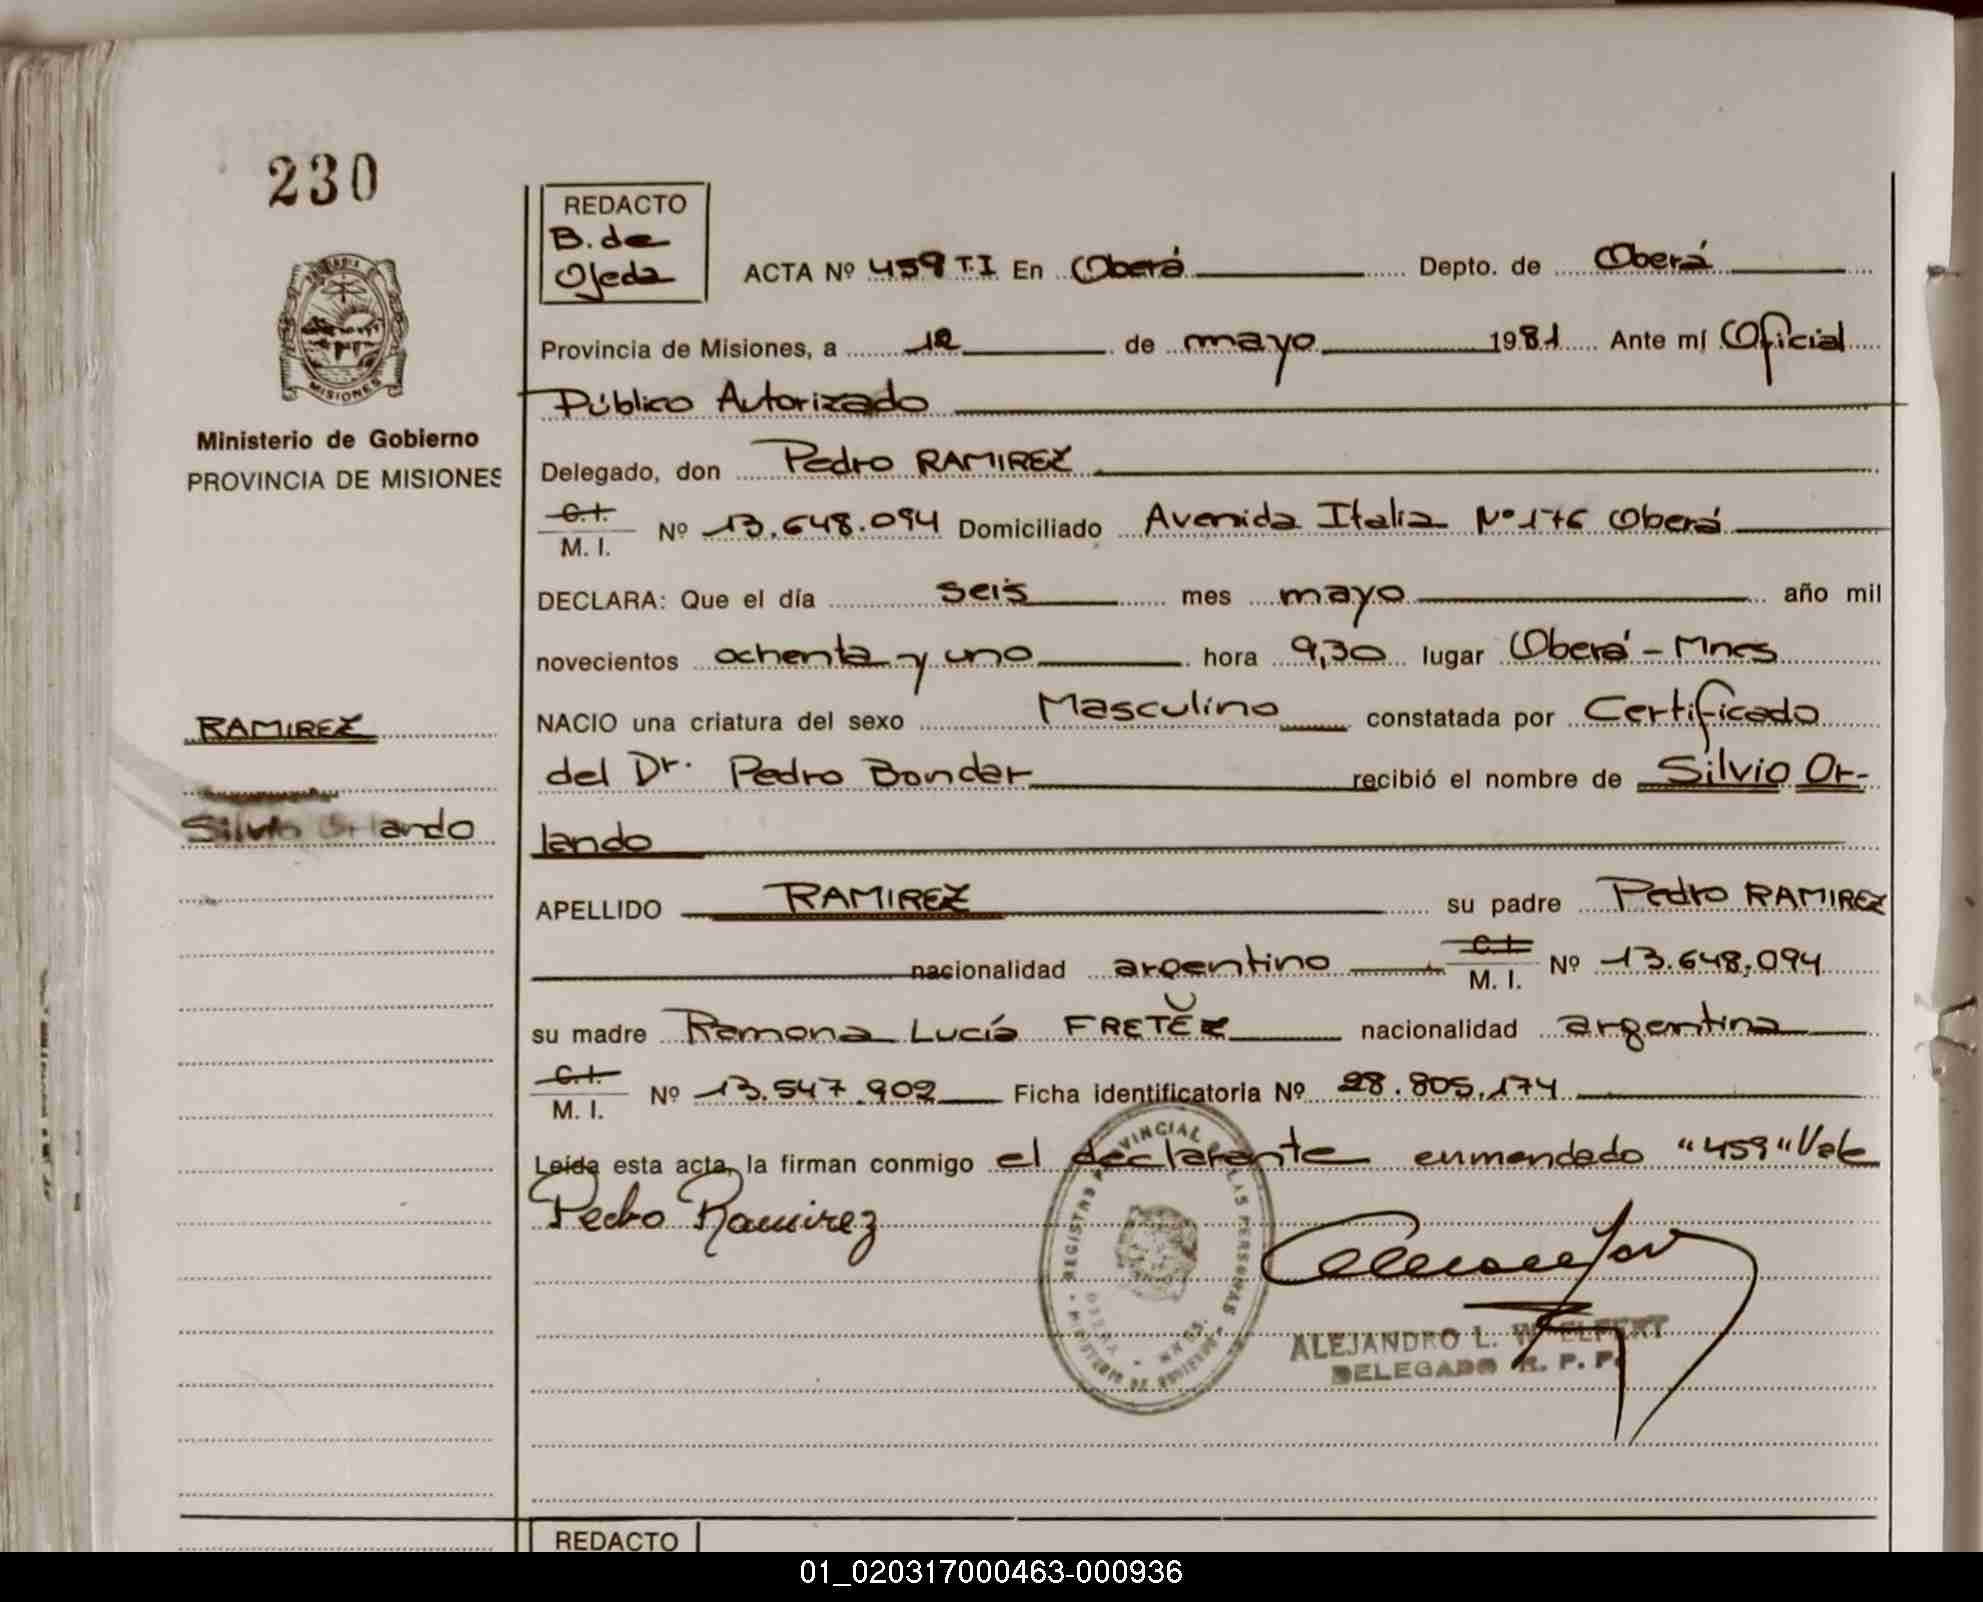 230
REDACTO
B. de
Ojeda
ACTA Nº 459 T.I En Oberá Depto. de Oberá
Provincia de Misiones, a 12 de mayo 1981 Ante mí Oficial
Público Autorizado
MISIONES
Ministerio de Gobierno
PROVINCIA DE MISIONES
Delegado, don Pedro RAMIREZ
C.I.
M. I. Nº 13.648.094 Domiciliado Avenida Italia Nº 176 Oberá
DECLARA: Que el día seis mes mayo año mil
novecientos ochenta y uno hora 9,30 lugar Oberá - Mnes
RAMIREZ
NACIO una criatura del sexo Masculino constatada por Certificado
del Dr. Pedro Bondar recibió el nombre de Silvio Or-
Silvio Orlando
lando
APELLIDO RAMIREZ su padre Pedro RAMIREZ
nacionalidad argentino C.I.
M. I. Nº 13.648.094
su madre Ramona Lucía FRETEZ nacionalidad argentina
C.I.
M. I. Nº 13.547.902 Ficha identificatoria Nº 28.805.174
Leída esta acta, la firman conmigo el declarante enmendado "459" Vale
Pedro Ramirez
REGISTRO PROVINCIAL DE LAS PERSONAS
OBERA MNES.
ALEJANDRO L. WOELFERT
DELEGADO R. P. P.
REDACTO
01_020317000463-000936